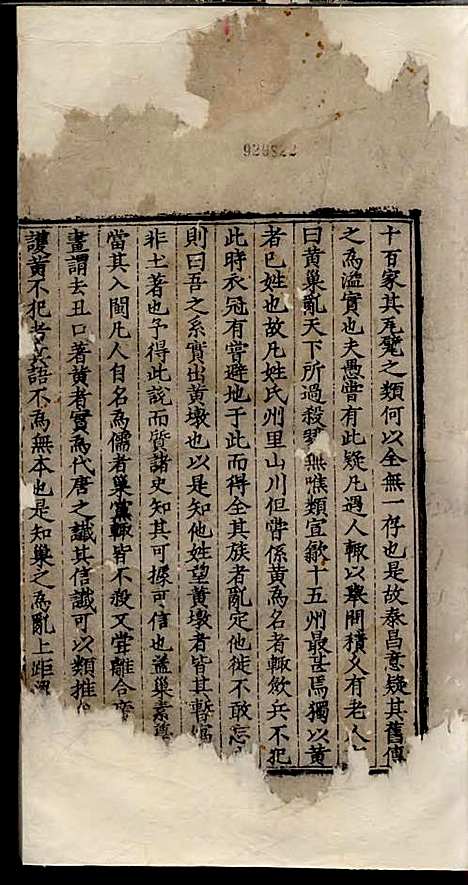 十百家其苑孽之類何以全無一存也是故泰昌意疑其舊傳
之為濫實也夫愚嘗有此疑凡遇人輒以舉問積乂有老人
曰黃巢亂天下所過殺無噍類宣歙十五州最甚焉獨以黃
者已姓也故凡姓氏州里山川但嘗係黃為名者輒斂兵不犯
此時衣冠有嘗避地于此而得全其族者亂定他徙不敢忘
則曰吾之系實出黃墩也以是知他姓望黃墩者皆其暫寓
非土著也予得此説而質諸史知其可據可信也蓋巢素
當其入閩凡人自名為儒者巢黨輒皆不殺又嘗離合
畫謂去丑口著黃者實為代唐之讖其信讖可以類推
黃不犯者其語不為無本也是知巢之為亂上距
929822